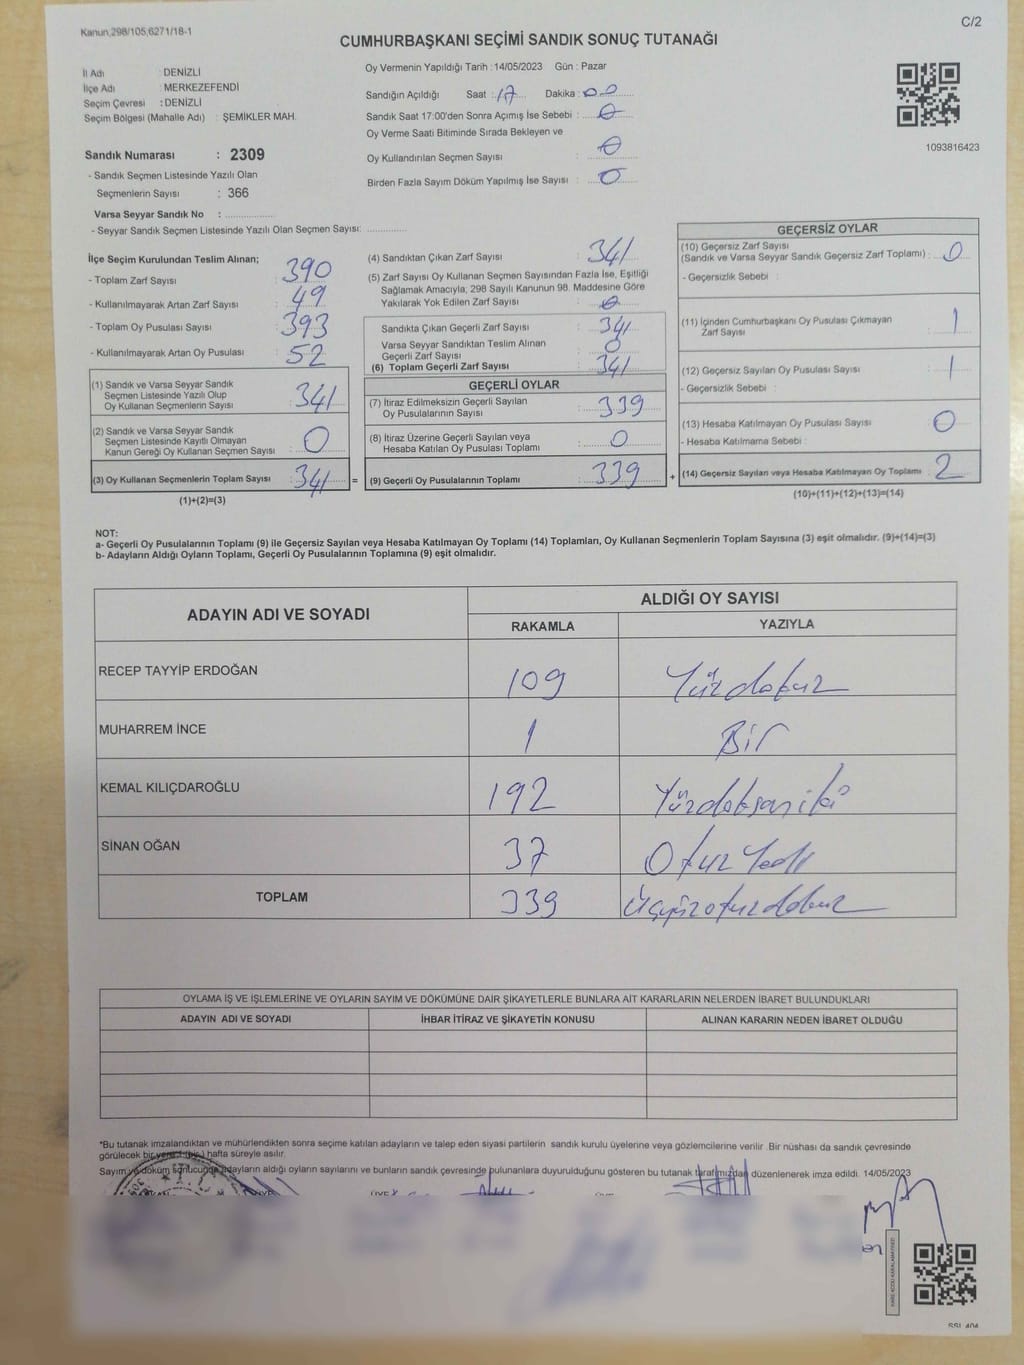 Kanun,298/105,6271/18-1
C/2
CUMHURBAŞKANI SEÇİMİ SANDIK SONUÇ TUTANAĞI
İl Adı : DENİZLİ
İlçe Adı : MERKEZEFENDİ
Seçim Çevresi : DENİZLİ
Seçim Bölgesi (Mahalle Adı) : ŞEMİKLER MAH.
Sandık Numarası : 2309
- Sandık Seçmen Listesinde Yazılı Olan
Seçmenlerin Sayısı : 366
Varsa Seyyar Sandık No : ................
- Seyyar Sandık Seçmen Listesinde Yazılı Olan Seçmen Sayısı: .............
Oy Vermenin Yapıldığı Tarih : 14/05/2023 Gün : Pazar
Sandığın Açıldığı Saat : 17 Dakika : 00
Sandık Saat 17:00'den Sonra Açımış İse Sebebi : 0
Oy Verme Saati Bitiminde Sırada Bekleyen ve
Oy Kullandırılan Seçmen Sayısı : 0
Birden Fazla Sayım Döküm Yapılmış İse Sayısı : 0
1093816423
İlçe Seçim Kurulundan Teslim Alınan;
- Toplam Zarf Sayısı : 390
- Kullanılmayarak Artan Zarf Sayısı : 49
- Toplam Oy Pusulası Sayısı : 393
- Kullanılmayarak Artan Oy Pusulası : 52
(1) Sandık ve Varsa Seyyar Sandık
Seçmen Listesinde Yazılı Olup
Oy Kullanan Seçmenlerin Sayısı : 341
(2) Sandık ve Varsa Seyyar Sandık
Seçmen Listesinde Kayıtlı Olmayan
Kanun Gereği Oy Kullanan Seçmen Sayısı : 0
(3) Oy Kullanan Seçmenlerin Toplam Sayısı : 341 =
(1)+(2)=(3)
(4) Sandıktan Çıkan Zarf Sayısı : 341
(5) Zarf Sayısı Oy Kullanan Seçmen Sayısından Fazla İse, Eşitliği
Sağlamak Amacıyla; 298 Sayılı Kanunun 98. Maddesine Göre
Yakılarak Yok Edilen Zarf Sayısı : 0
Sandıkta Çıkan Geçerli Zarf Sayısı : 341
Varsa Seyyar Sandıktan Teslim Alınan
Geçerli Zarf Sayısı : 0
(6) Toplam Geçerli Zarf Sayısı : 341
GEÇERLİ OYLAR
(7) İtiraz Edilmeksizin Geçerli Sayılan
Oy Pusulalarının Sayısı : 339
(8) İtiraz Üzerine Geçerli Sayılan veya
Hesaba Katılan Oy Pusulası Toplamı : 0
(9) Geçerli Oy Pusulalarının Toplamı : 339 +
GEÇERSİZ OYLAR
(10) Geçersiz Zarf Sayısı
(Sandık ve Varsa Seyyar Sandık Geçersiz Zarf Toplamı) : 0
- Geçersizlik Sebebi :
(11) İçinden Cumhurbaşkanı Oy Pusulası Çıkmayan
Zarf Sayısı : 1
(12) Geçersiz Sayılan Oy Pusulası Sayısı : 1
- Geçersizlik Sebebi :
(13) Hesaba Katılmayan Oy Pusulası Sayısı : 0
- Hesaba Katılmama Sebebi :
(14) Geçersiz Sayılan veya Hesaba Katılmayan Oy Toplamı : 2
(10)+(11)+(12)+(13)=(14)
NOT:
a- Geçerli Oy Pusulalarının Toplamı (9) ile Geçersiz Sayılan veya Hesaba Katılmayan Oy Toplamı (14) Toplamları, Oy Kullanan Seçmenlerin Toplam Sayısına (3) eşit olmalıdır. (9)+(14)=(3)
b- Adayların Aldığı Oyların Toplamı, Geçerli Oy Pusulalarının Toplamına (9) eşit olmalıdır.
ADAYIN ADI VE SOYADI
ALDIĞI OY SAYISI
RAKAMLA YAZIYLA
RECEP TAYYİP ERDOĞAN 109 Yüzdokuz
MUHARREM İNCE 1 Bir
KEMAL KILIÇDAROĞLU 192 Yüzdoksaniki
SİNAN OĞAN 37 Otuz Yedi
TOPLAM 339 Üçyüzotuzdokuz
OYLAMA İŞ VE İŞLEMLERİNE VE OYLARIN SAYIM VE DÖKÜMÜNE DAİR ŞİKAYETLERLE BUNLARA AİT KARARLARIN NELERDEN İBARET BULUNDUKLARI
ADAYIN ADI VE SOYADI İHBAR İTİRAZ VE ŞİKAYETİN KONUSU ALINAN KARARIN NEDEN İBARET OLDUĞU
*Bu tutanak imzalandıktan ve mühürlendikten sonra seçime katılan adayların ve talep eden siyasi partilerin sandık kurulu üyelerine veya gözlemcilerine verilir .Bir nüshası da sandık çevresinde
görülecek bir yere 1 (bir) hafta süreyle asılır.
Sayım ve döküm sonucunda adayların aldığı oyların sayılarını ve bunların sandık çevresinde bulunanlara duyurulduğunu gösteren bu tutanak tarafımızdan düzenlenerek imza edildi. 14/05/2023
T.C.